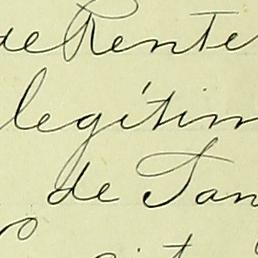 de Rente
legítim
de San